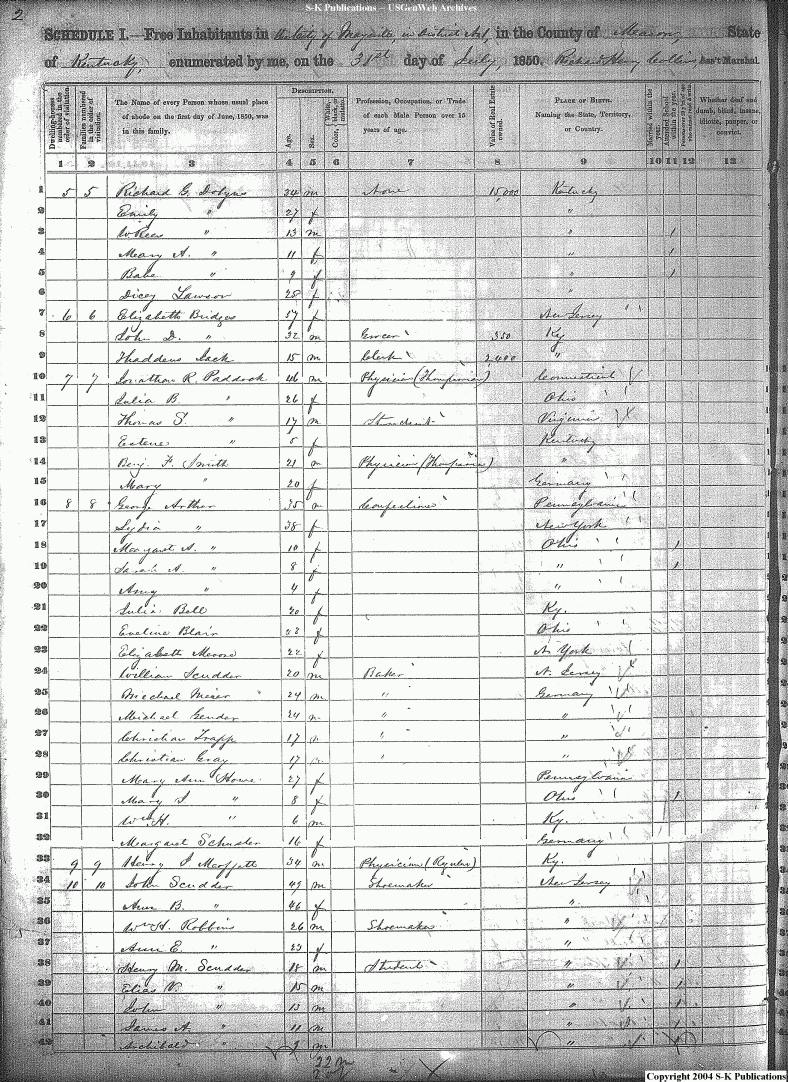 S-K Publications – USGenWeb Archives
2
SCHEDULE I.—Free Inhabitants in the City of Maysville, in District No 1, in the County of Mason, State
of Kentucky, enumerated by me, on the 31st day of July, 1850. Richard Henry Collins, Ass't Marshal.
Dwelling-houses numbered in the order of visitation. Families numbered in the order of visitation. The Name of every Person whose usual place of abode on the first day of June, 1850, was in this family. DESCRIPTION. Age. Sex. Color, Profession, Occupation, or Trade of each Male Person over 15 years of age. Value of Real Estate owned. PLACE OF BIRTH. Naming the State, Territory, or Country. Married within the year. Attended School within the year. Whether deaf and dumb, blind, insane, idiotic, pauper, or convict.
1 2 3 4 5 6 7 8 9 10 11 12 13
1 5 5 Richard G. Dobyns 34 m None 15,000 Kentucky
2 Emily " 27 f "
3 W Rees " 13 m " 1
4 Mary A. " 11 f " 1
5 Babe " 9 f " 1
6 Dicey Lawson 28 f "
7 6 6 Elizabeth Bridges 57 f New Jersey
8 John D. " 32 m Grocer 350 Ky
9 Thaddeus Jack 15 m Clerk 2,400 "
10 7 7 Jonathan R. Paddock 46 m Physician (Thompsonian) Connecticut
11 Julia B. " 26 f Ohio
12 Thomas S. " 17 m Virginia
13 " 5 f Kentucky
14 Benj. F. Smith 21 m Physician (Thompsonian) "
15 Mary " 20 f Germany
16 8 8 George Arthur 35 m Confectioner Pennsylvania
17 Lydia " 38 f New York
18 Margaret A. " 10 f Ohio 1
19 Sarah A. " 8 f " 1
20 Amy " 4 f "
21 Julia Bell 20 f Ky.
22 Evelina Blair f Ohio
23 Elizabeth Moore 22 f N. York
24 William Scudder 20 m Baker N. Jersey
25 Michael 24 m " Germany
26 Michael Gender 24 m " "
27 Christian Trapp 17 m " "
28 Christian Gray 17 m " "
29 Mary Ann Howe 27 f Pennsylvania
30 Mary J. " 8 f Ohio 1
31 Wm H. " 6 m Ky.
32 Margaret 16 f Germany
33 9 9 Henry J. Moffett 34 m Physician (Regular) Ky.
34 10 10 John Scudder 49 m Shoemaker New Jersey
35 Ann B. " 46 f "
36 Wm H. Robbins 26 m Shoemaker "
37 Ann E. " 23 f "
38 Henry M. Scudder 18 m Student " 1
39 Elias V. " 15 m " 1
40 John " 13 m " 1
41 James A. " 11 m " 1
42 Archibald " 9 m " 1
22 m
Copyright 2004 S-K Publications